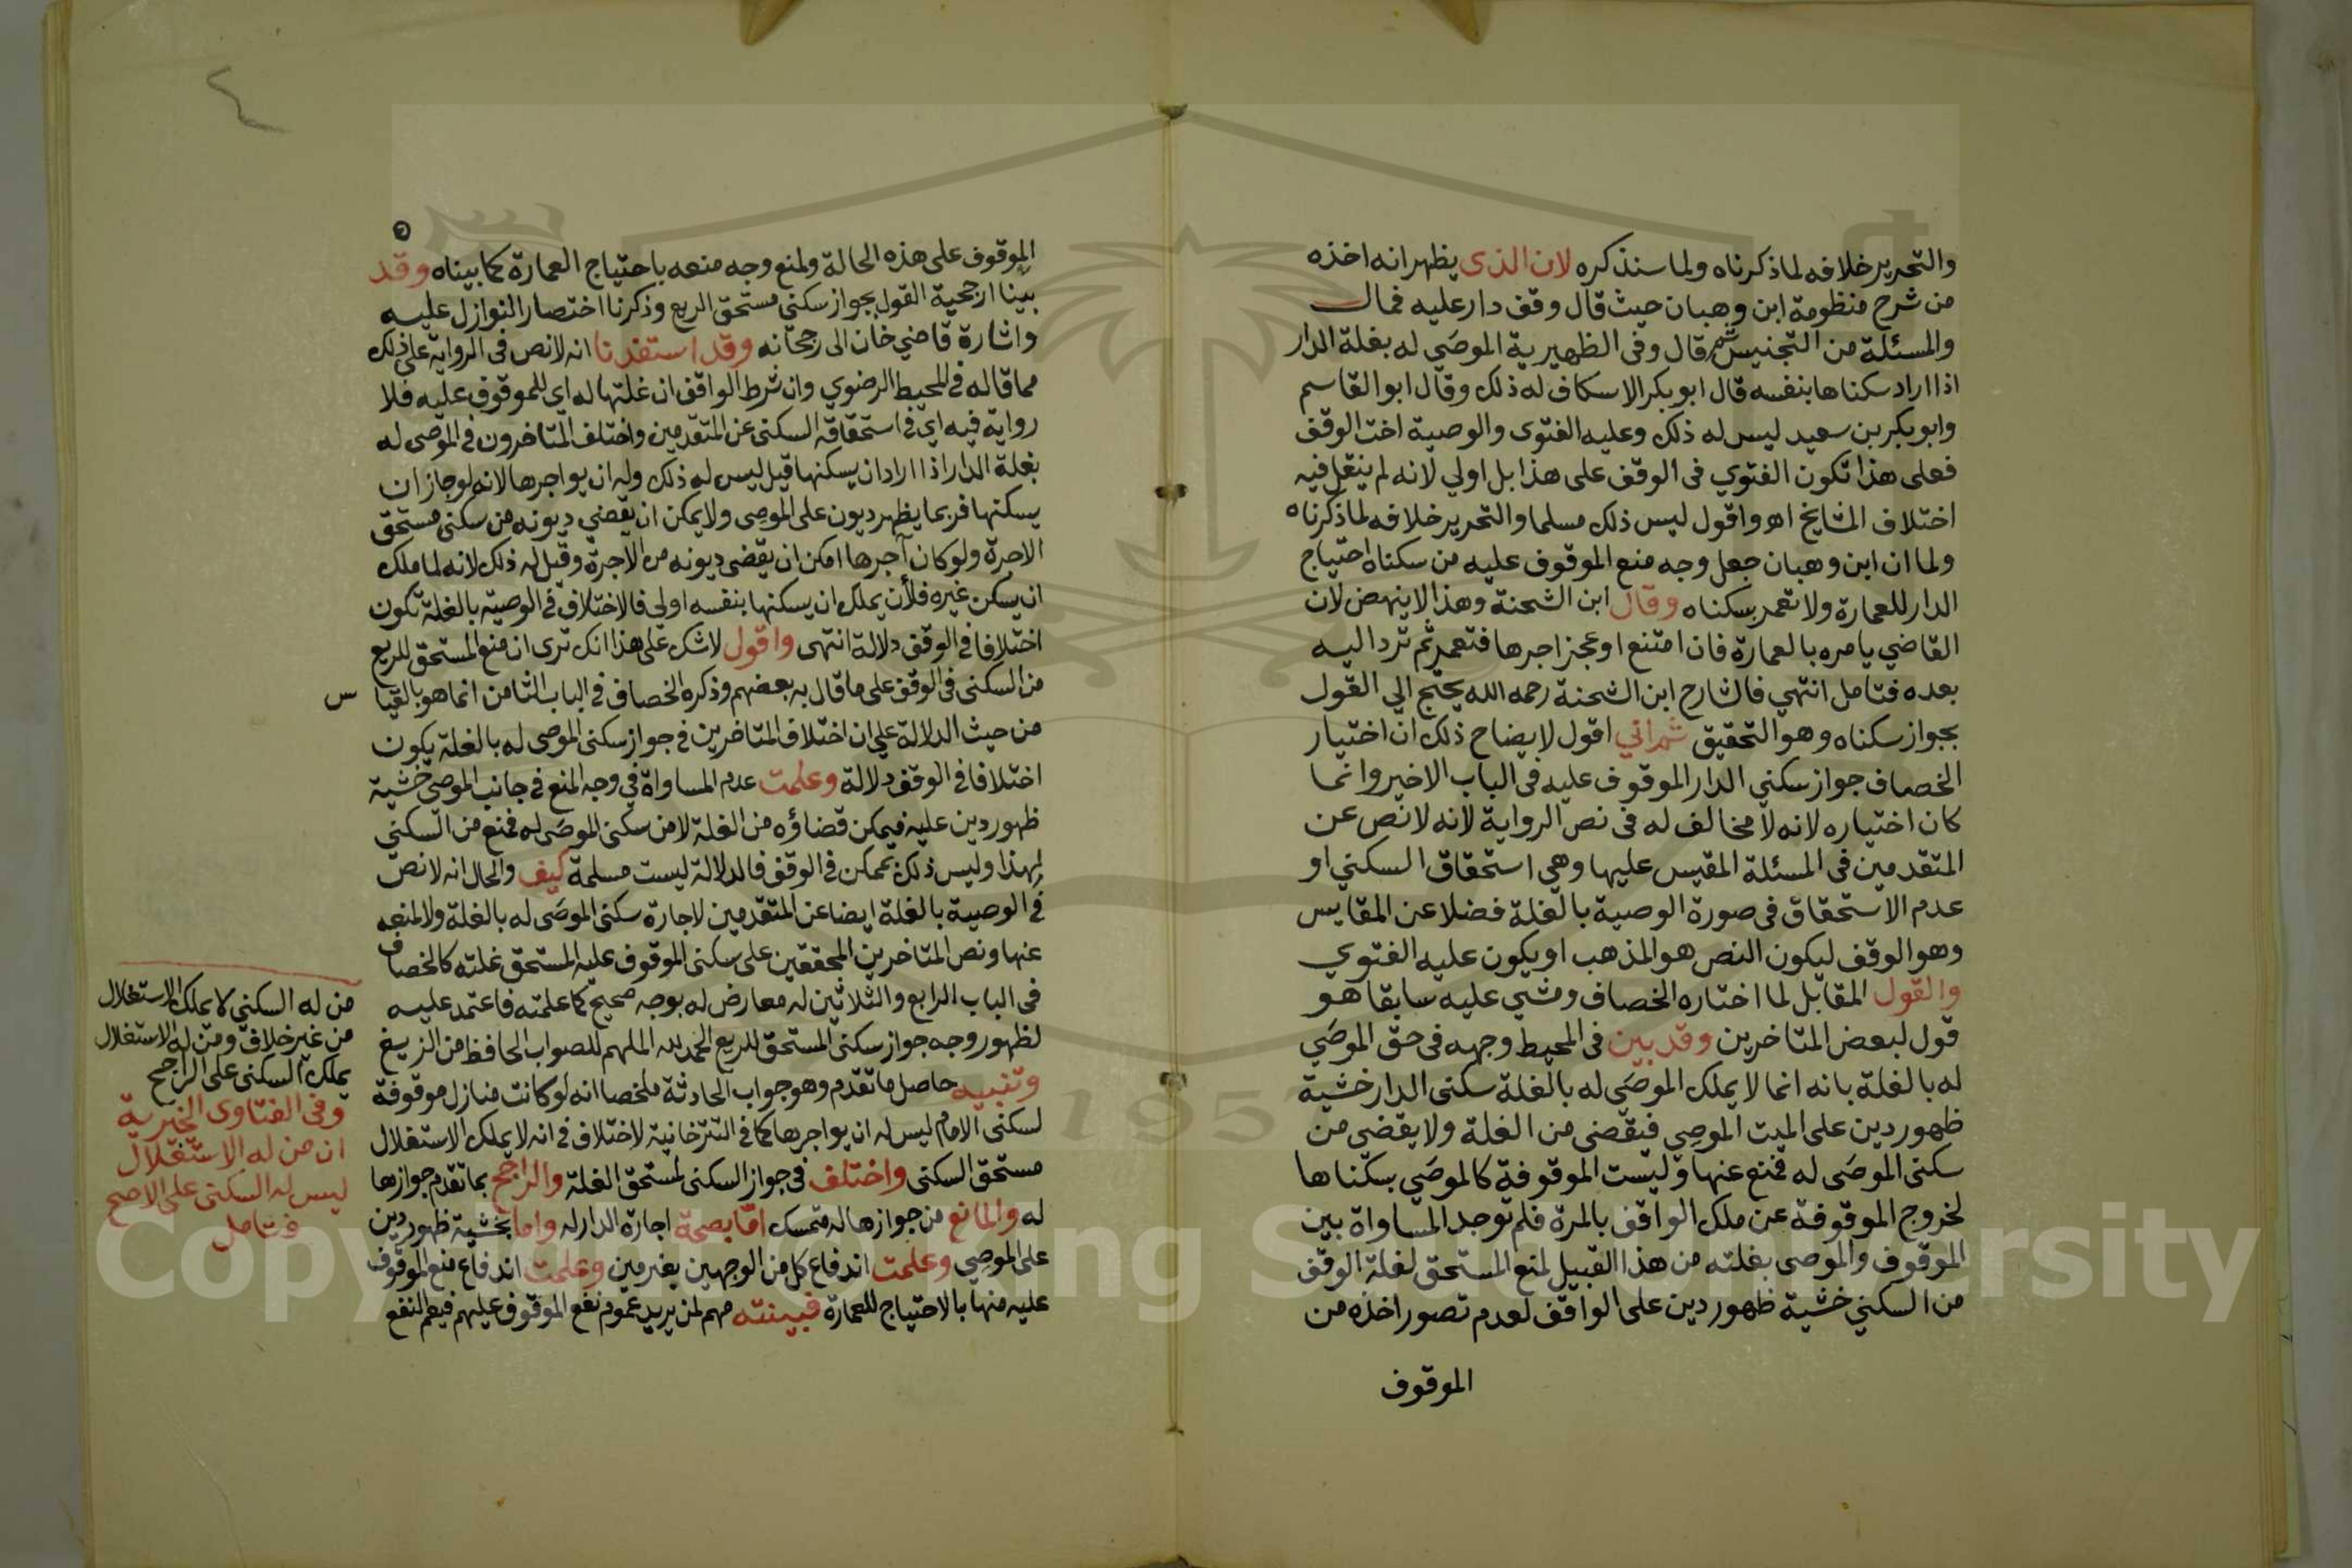 والتحرير خلافه لما ذكرناه ولما سنذكره لان الذى يظهر انه اخذه
من شرح منظومة ابن وهبان حيث قال وقف دار عليه فمال
والمسئلة من التجنيس ثم قال وفى الظهيرية الموصَي له بغلة الدار
اذا اراد سكناها بنفسه قال ابو بكر الاسكاف له ذلك وقال ابو القاسم
وابو بكر بن سعيد ليس له ذلك وعليه الفتوى والوصية اخت الوقف
فعلى هذا تكون الفتوي فى الوقف على هذا بل اولي لانه لم ينقل فيه
اختلاف المشايخ اهـ واقول ليس ذلك مسلما والتحرير خلافه لما ذكرناه
ولما ان ابن وهبان جعل وجه منع الموقوف عليه من سكناه احتياج
الدار للعمارة ولا تعمر بسكناه وقال ابن الشحنة وهذا لا ينهض لان
القاضي يامره بالعمارة فان امتنع او عجز اجرها فتعمر ثم ترد اليه
بعده فتامل انتهي فالشارح ابن الشحنة رحمه الله يحتج الي القول
بجواز سكناه وهو التحقيق ثم اني اقول لايضاح ذلك ان اختيار
الخصاف جواز سكني الدار الموقوف عليه فى الباب الاخير وانما
كان اختياره لانه لا مخالف له فى نص الرواية لانه لا نص عن
المتقدمين فى المسئلة المقيس عليها وهي استحقاق السكني او
عدم الاستحقاق فى صورة الوصية بالغلة فضلا عن المقايس
وهو الوقف ليكون النص هو المذهب او يكون عليه الفتوي
والقول المقابل لما اختاره الخصاف ومشي عليه سابقا هو
قول لبعض المتاخرين وقد بين فى المحيط وجهه فى حق الموصَي
له بالغلة بانه انما لا يملك الموصَي له بالغلة سكنى الدار خشية
ظهور دين على الميت الموصِي فيقضى من الغلة ولا يقضى من
سكنى الموصَى له فمنع عنها وليست الموقوفة كالموصَي بسكناها
لخروج الموقوفة عن ملك الواقف بالمرة فلم توجد المساواة بين
الموقوف والموصى بغلته من هذا القبيل لمنع المستحق لغلة الوقف
من السكني خشية ظهور دين على الواقف لعدم تصور اخذه من
الموقوف
الموقوف على هذه الحالة ولمنع وجه منعه باحتياج العمارة كما بيناه وقد
بينا ارجحية القول بجواز سكنى مستحق الريع وذكرنا اختصار النوازل عليه
واشارة قاضي خان الى رجحانه وقد استفدنا انه لا نص فى الرواية على ذلك
مما قاله فى المحيط الرضوي وان شرط الواقف ان غلتها له اى للموقوف عليه فلا
رواية فيه اي فى استحقاقه السكنى عن المتقدمين واختلف المتاخرون فى الموصى له
بغلة الدار اذا اراد ان يسكنها قيل ليس له ذلك وله ان يواجرها لانه لو جاز ان
يسكنها فربما يظهر ديون على الموصِى ولا يمكن ان يقضي ديونه من سكنى مستحق
الاجرة ولو كان آجرها امكن ان يقضى ديونه من الاجرة وقيل له ذلك لانه لما ملك
ان يسكن غيره فلأن يملك ان يسكنها بنفسه اولي فالاختلاف فى الوصية بالغلة تكون
اختلافا فى الوقف دلالة انتهى واقول لا شك على هذا انك ترى ان منع المستحق للريع
من السكنى فى الوقف على ما قال به بعضهم وذكره الخصاف فى الباب الثامن انما هو بالقيا س
من حيث الدلالة على ان اختلاف المتاخرين فى جواز سكنى الموصى له بالغلة يكون
اختلافا فى الوقف دلالة وعلمت عدم المساواة في وجه المنع فى جانب الموصى خشية
ظهور دين عليه فيمكن قضاؤه من الغلة لا من سكنى الموصَى له فمنع من السكني
لهذا وليس ذلك بممكن فى الوقف فالدلالة ليست مسلمة كيف والحال انه لا نص
فى الوصية بالغلة ايضا عن المتقدمين لاجازة سكنى الموصَى له بالغلة ولا لمنعه
عنها ونص المتاخرين المحققين على سكنى الموقوف عليه المستحق غلته كالخصاف
فى الباب الرابع والثلاثين له معارض له بوجه صحيح كما علمته فاعتمد عليه
لظهور وجه جواز سكنى المستحق للريع الحمد لله الملهم للصواب الحافظ من الزيغ
وتنبيه حاصل ما تقدم وهو جواب الحادثة ملخصا انه لو كانت منازل موقوفة
لسكنى الامام ليس له ان يواجرها كما فى التترخانية لا خلاف فى انه لا يملك الاستغلال
مستحق السكنى واختلف فى جواز السكنى لمستحق الغلة والراجح بما تقدم جوازها
له والمانع من جوازها له متمسك اما بصحة اجارة الدار له واما بخشية ظهور دين
على الموصِي وعلمت اندفاع كل من الوجهين بغير مين وعلمت اندفاع منع الموقوف
عليه منها بالاحتياج للعمارة فبينته مهم لمن يريد عموم نفع الموقوف عليهم فيعم النفع
من له السكنى لا يملك الاستغلال
من غير خلاف ومن له الاستغلال
يملك السكنى على الراجح
وفى الفتاوى الخيرية
ان من له الاستغلال
ليس له السكنى على الاصح
فتامل
Copyright © King Saud University
195